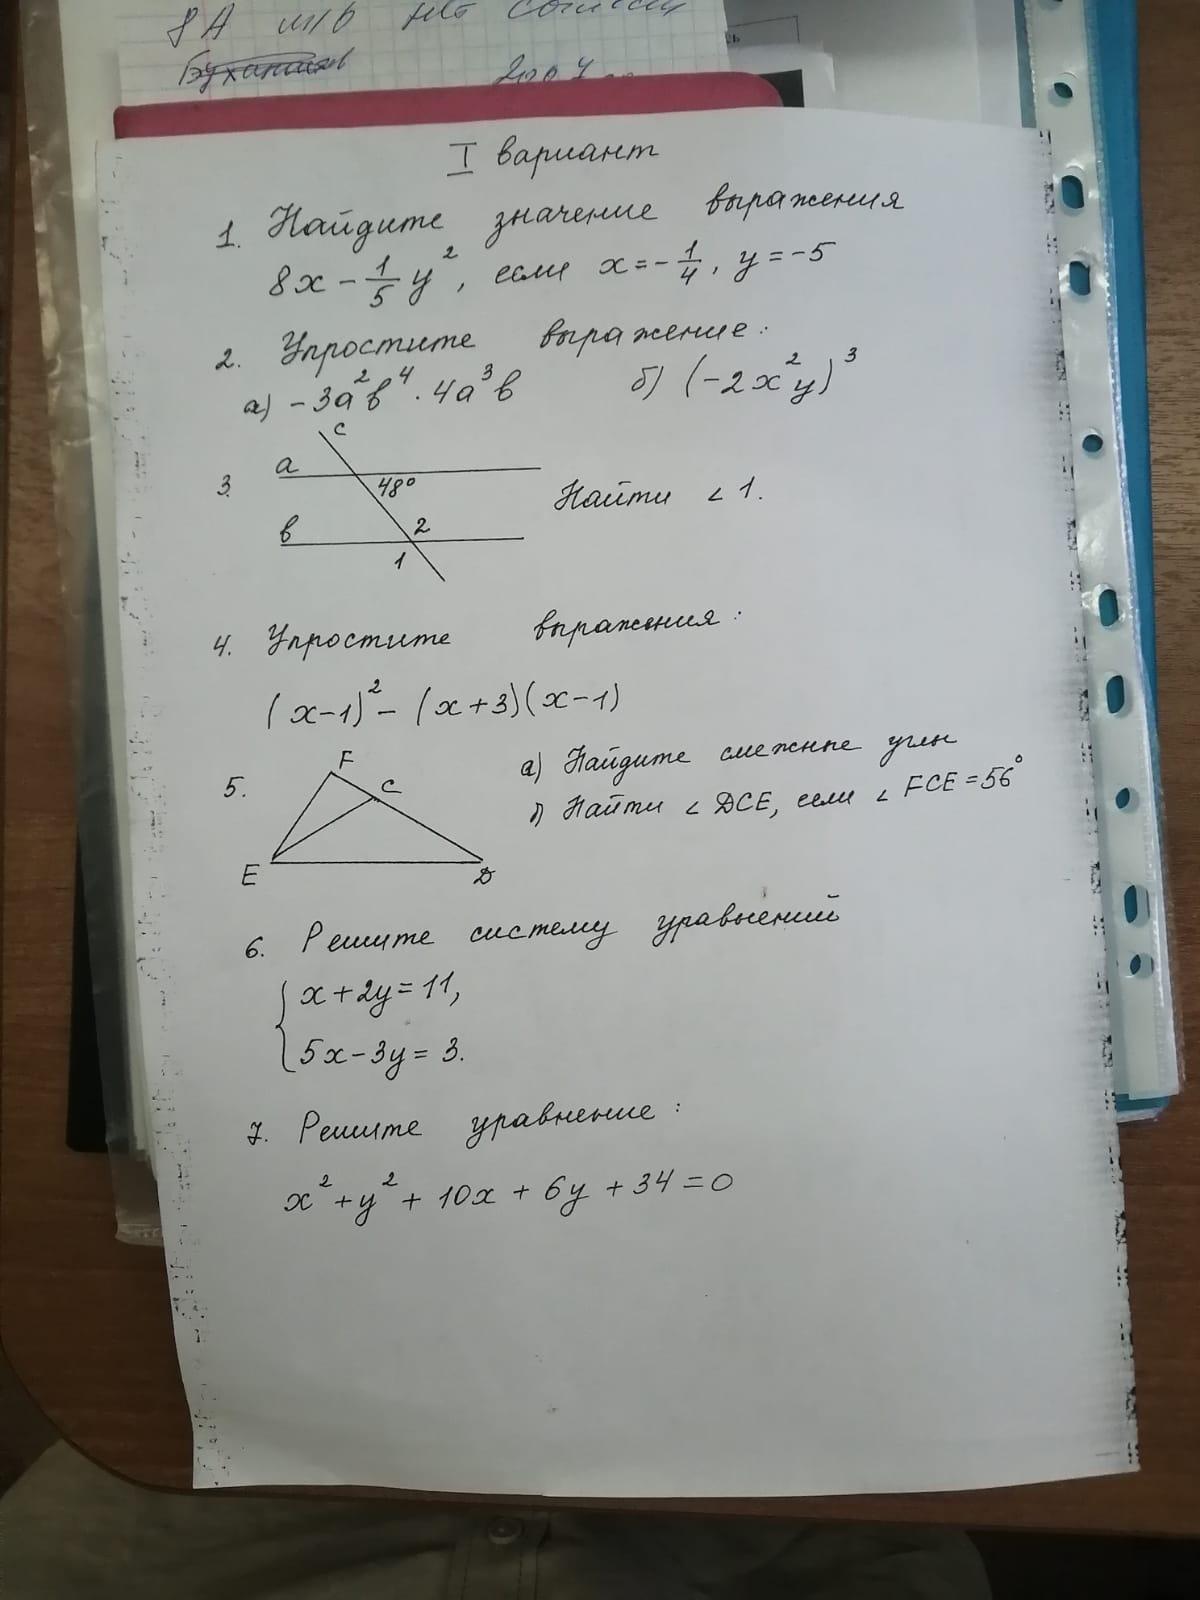 8А
I вариант
1. Найдите значение выражения
8x - 1/5 y², если x = -1/4, y = -5
2. Упростите выражение:
а) -3a²b⁴ · 4a³b б) (-2x²y)³
c
a
3. 48° Найти ∠1.
b 2
1
4. Упростите выражения:
(x-1)² - (x+3)(x-1)
F а) Найдите смежные углы
5. C б) Найти ∠DCE, если ∠FCE = 56°
E D
6. Решите систему уравнений
{ x + 2y = 11,
5x - 3y = 3.
7. Решите уравнение:
x² + y² + 10x + 6y + 34 = 0